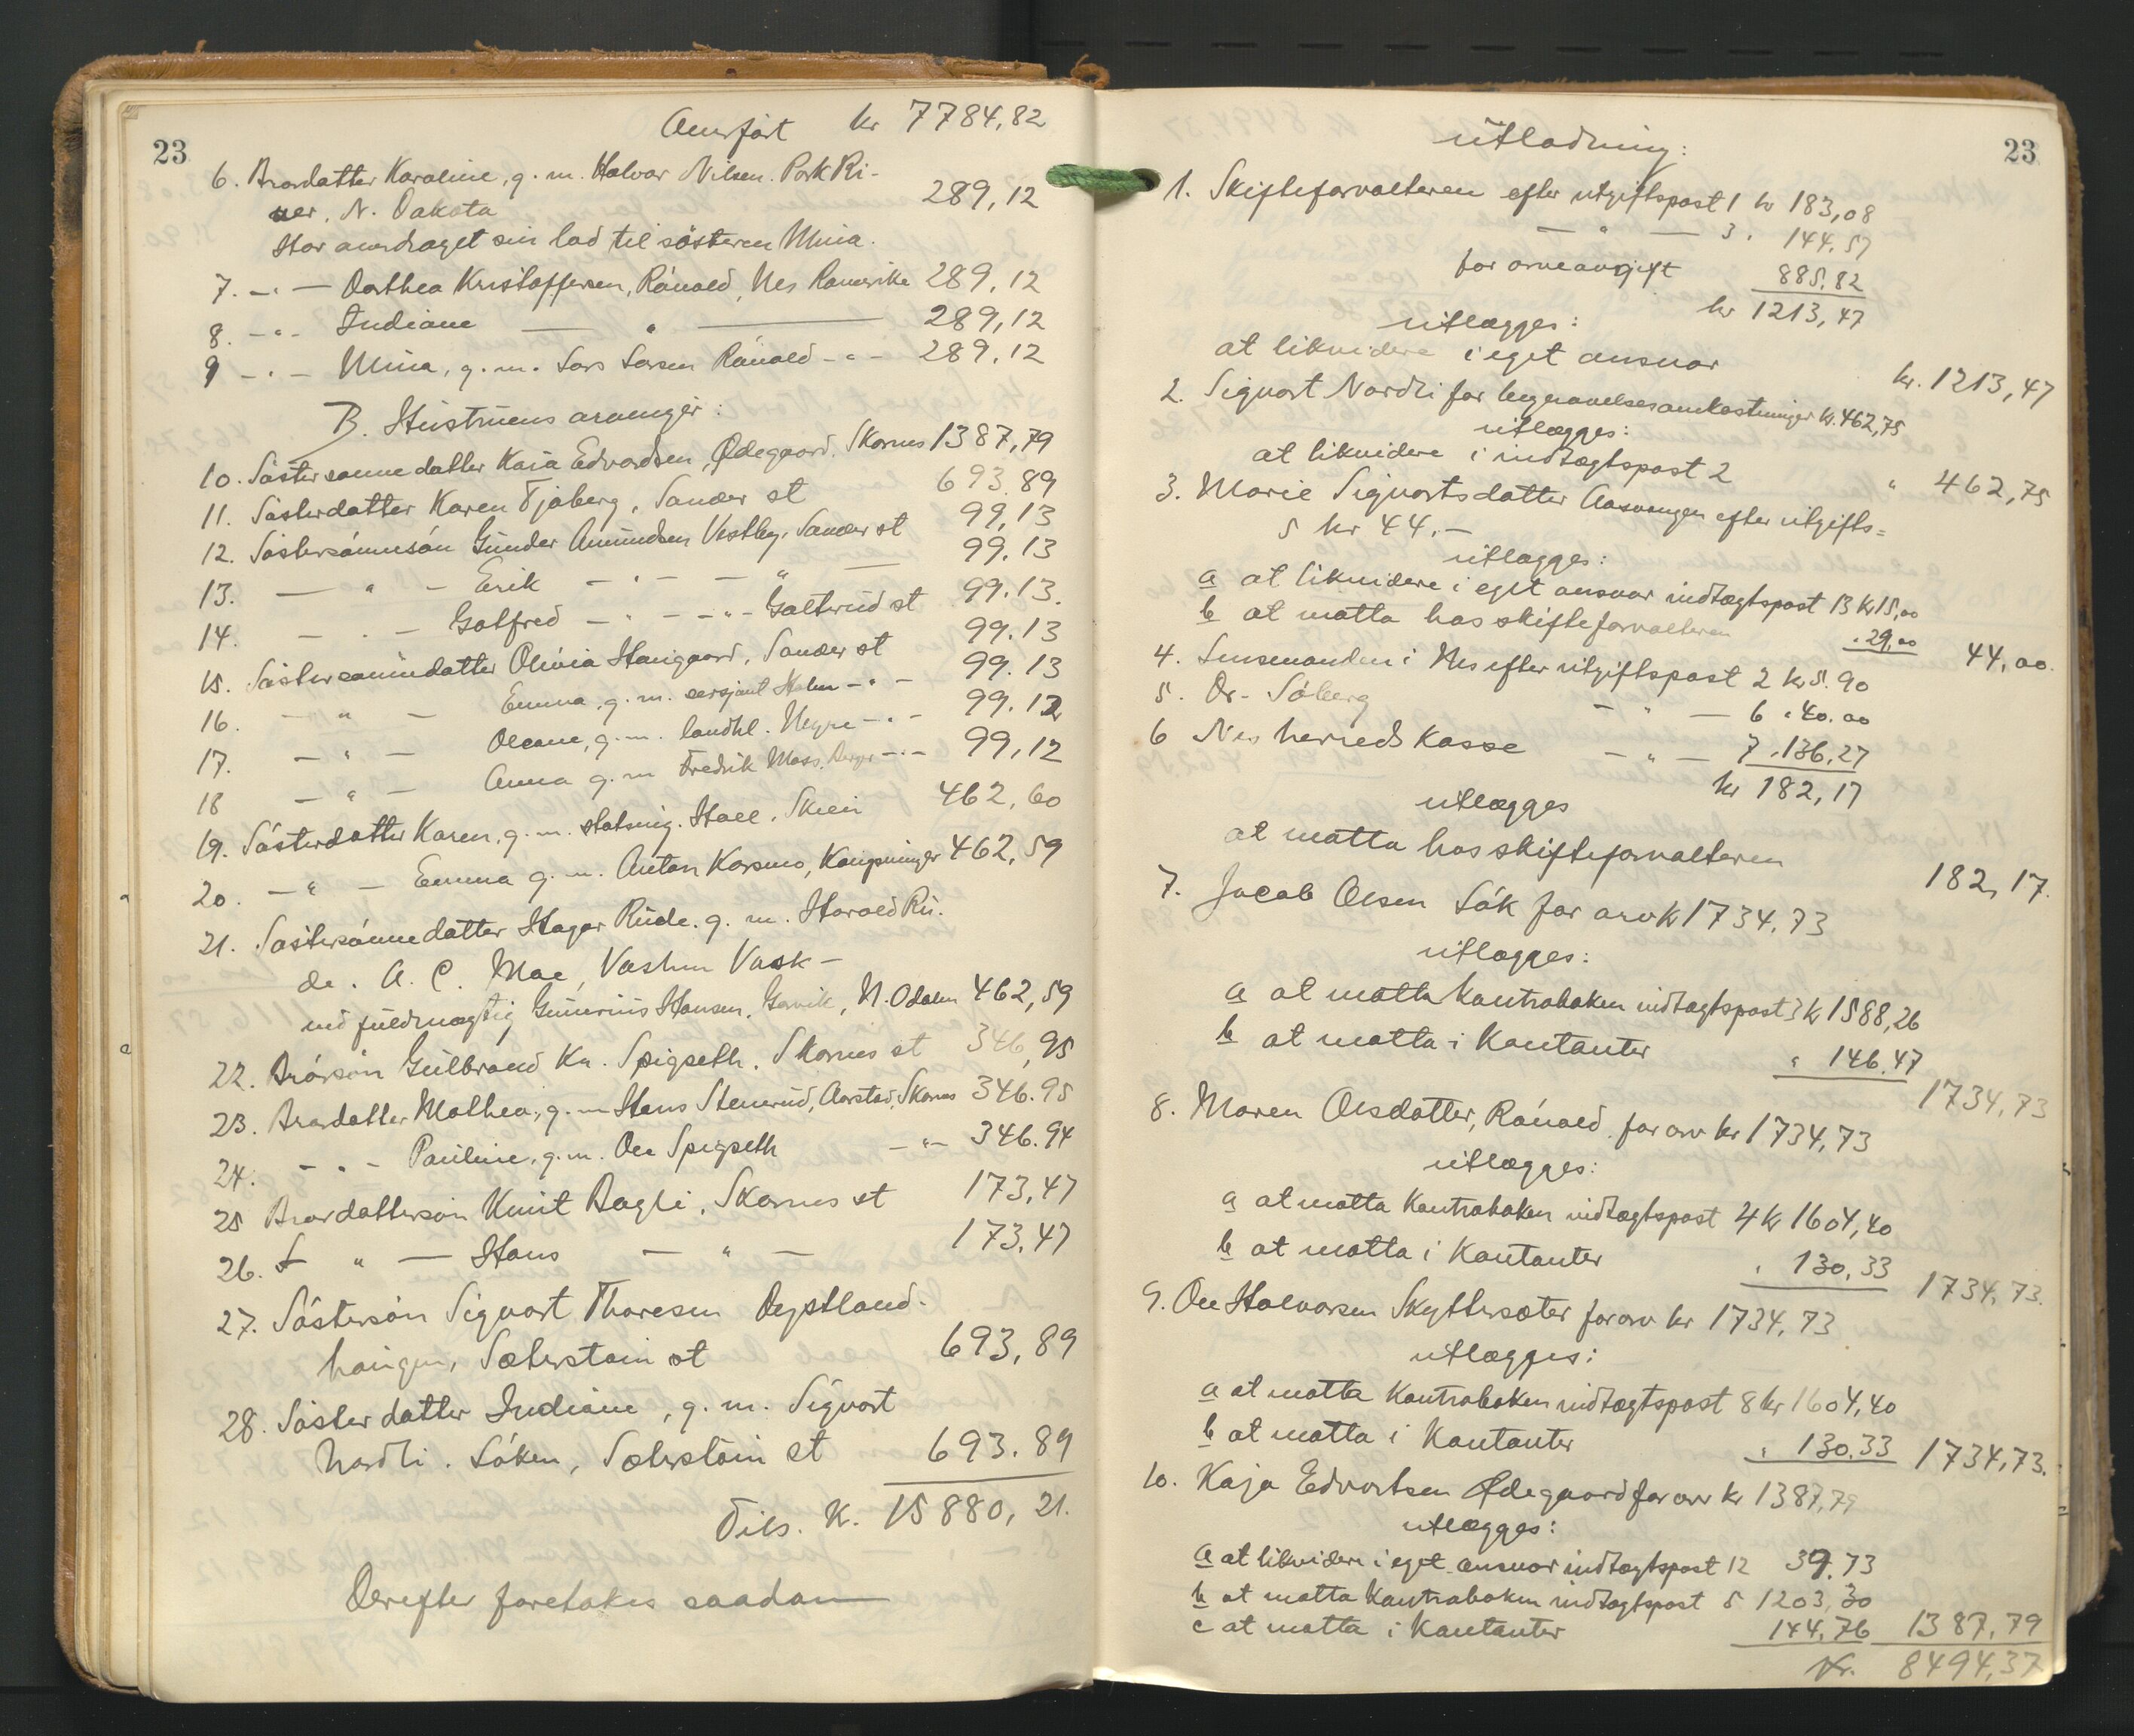 23
Overført kr 7784,82
6. Brordatter Karoline, g. m. Halvor Nilsen. Park Ri-
ver, N. Dakota 289,12
Har overdraget sin lod til søsteren Mina.
7. -"- Dorthea Kristoffersen, Rånaas, Nes Romerike 289,12
8. -"- Indiane — " — 289,12
9 -"- Mina, g. m. Lars Larsen Rånaas -"- 289,12
B. Hustruens arvinger:
10. Søstersønnedatter Kaia Edvardsen, Ødegaard. Skarnes 1387,79
11. Søsterdatter Karen Tjaberg, Sander st 693.89
12. Søstersønnesøn Gunder Amundsen Vestby, Sander st 99,13
13. — " — Erik — " — — " — 99.13
14. — " — Gotfred — " — -"- Galterud st 99.13.
15. Søstersønnedatter Olivia Haugaard, Sander st 99.13
16. — " — Emma, g. m. sersjant Holm -"- 99.13
17. — " — Oleane, g. m. landhl. Negre -"- 99.12
18 — " — Anna g. m Fredrik Moss, Berger -"- 99,12
19. Søsterdatter Karen, g. m. statsing. Hall. Skien 462,60
20. — " — Emma g. m. Anton Korsmo, Kongsvinger 462,59
21. Søstersønnedatter Hagar Rude. g. m. Harald Ru-
de. A. C. Mac, Vashon Vask —
ved fuldmægtig Gunerius Hansen, Garvik, N. Odalen 462,59
22. Brorsøn Gulbrand Kr. Spigseth. Skarnes st 346,95
23. Brordatter Mathea, g. m Hans Stenerud, Aarstad, Skarnes 346.95
24. -"- Pauline, g. m. Ole Spigseth -"- 346.94
25 Brordattersøn Knut Bagli, Skarnes st 173,47
26. — " — Hans — " — 173,47
27. Søstersøn Sigvart Thoresen Dystland-
haugen, Sæterstøin st 693,89
28. Søsterdatter Indiane, g. m. Sigvart
Nordli. Søken, Sæterstøin st 693.89
Tils. K. 15880,21.
Derefter foretokes saadan
23
utlodning:
1. Skifteforvalteren efter utgiftspost 1 kr 183,08
— " — 3 " 144.57
for arveavgift 885,82
kr 1213,47
utlægges:
at likvidere i eget ansvar kr. 1213,47
2. Sigvart Nordli for begravelsesomkostninger kr. 462,75
utlægges:
at likvidere i indtægtspost 2 " 462,75
3. Marie Sigvartsdatter Aasvangen efter utgifts=
5 kr 44.—
utlægges:
a at likvidere i eget ansvar indtægtspost 13 kr 15,00
b at motta hos skifteforvalteren " 29,00 44,00.
4. Lensmanden i Nes efter utgiftspost 2 kr 5.90
5. Dr. Søberg — " — 6 " 40.00
6 Nes herreds kasse — " — 7 " 136,27
kr 182,17
utlægges
at motta hos skifteforvalteren 182,17.
7. Jacob Olsen Søk for arv kr 1734,73
utlægges:
a at motta kontraboken indtægtspost 3 kr 1588,26
b at motta i kontanter " 146.47
1734,73
8. Maren Olsdatter, Rånaas for arv kr 1734,73
utlægges:
a at motta kontraboken indtægtspost 4 kr 1604,40
b at motta i kontanter " 130,33 1734,73.
9. Ole Halvorsen Skyttersæter for arv kr 1734,73
utlægges:
a at motta kontraboken indtægtspost 8 kr 1604,40
b at motta i kontanter " 130.33 1734,73.
10. Kaja Edvartsen Ødegaard for arv kr 1387,79
utlægges:
a at likvidere i eget ansvar indtægtspost 12 39.73
b at motta kontraboken indtægtspost 5 1203,30
c at motta i kontanter 144,76 1387,79
Kr. 8494,37